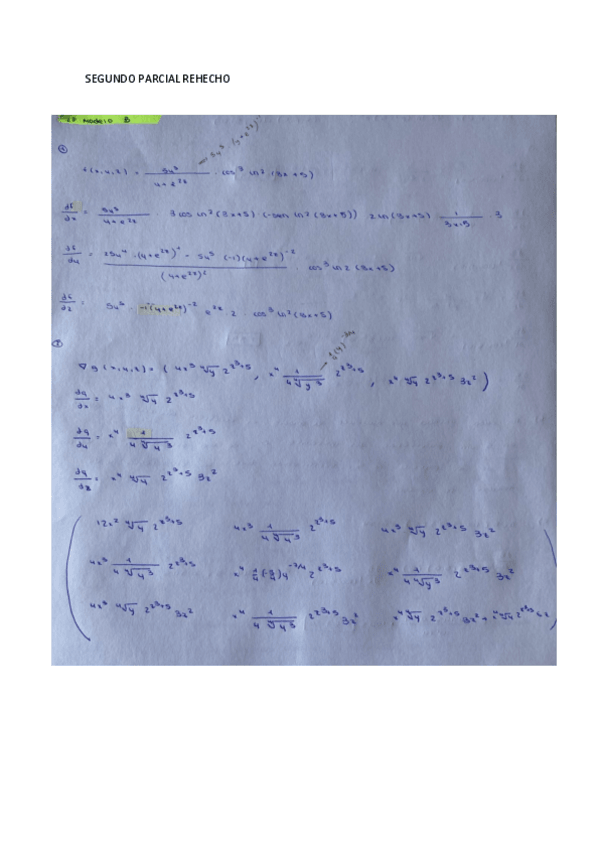 SEGUNDO PARCIAL REHECHO
modelo B
f(x,y,z) = 5y⁵ / (y+e^{2z}) · cos³ ln²(3x+5)
df/dx = 5y⁵ / (y+e^{2z}) 3 cos ln²(3x+5) · (-sen ln²(3x+5)) 2 ln(3x+5) · 1/(3x+5) · 3
· cos³ ln²(3x+5)
df/dz = 5y⁵ (y+e^{2z})^{-2} e^{2z} · 2 · cos³ ln²(3x+5)
∇g(x,y,z) = (4x³ ⁴√y 2^{z³+5}, x⁴ 1/(4 ⁴√y³) 2^{z³+5}, x⁴ ⁴√y 2^{z³+5} 3z²)
dg/dx = 4x³ ⁴√y 2^{z³+5}
dg/dy = x⁴ 1/(4 ⁴√y³) 2^{z³+5}
dg/dz = x⁴ ⁴√y 2^{z³+5} 3z²
12x² ⁴√y 2^{z³+5} 4x³ 1/(4 ⁴√y³) 2^{z³+5} 4x³ ⁴√y 2^{z³+5} 3z²
4x³ 1/(4 ⁴√y³) 2^{z³+5} x⁴ 1/4 (-3/4) y^{-7/4} 2^{z³+5} x⁴ 1/(4 ⁴√y³) 2^{z³+5} 3z²
4x³ ⁴√y 2^{z³+5} 3z² x⁴ 1/(4 ⁴√y³) 2^{z³+5} 3z² x⁴ ⁴√y 2^{z³+5} 3z² + x⁴ ⁴√y 2^{z³+5} 6z